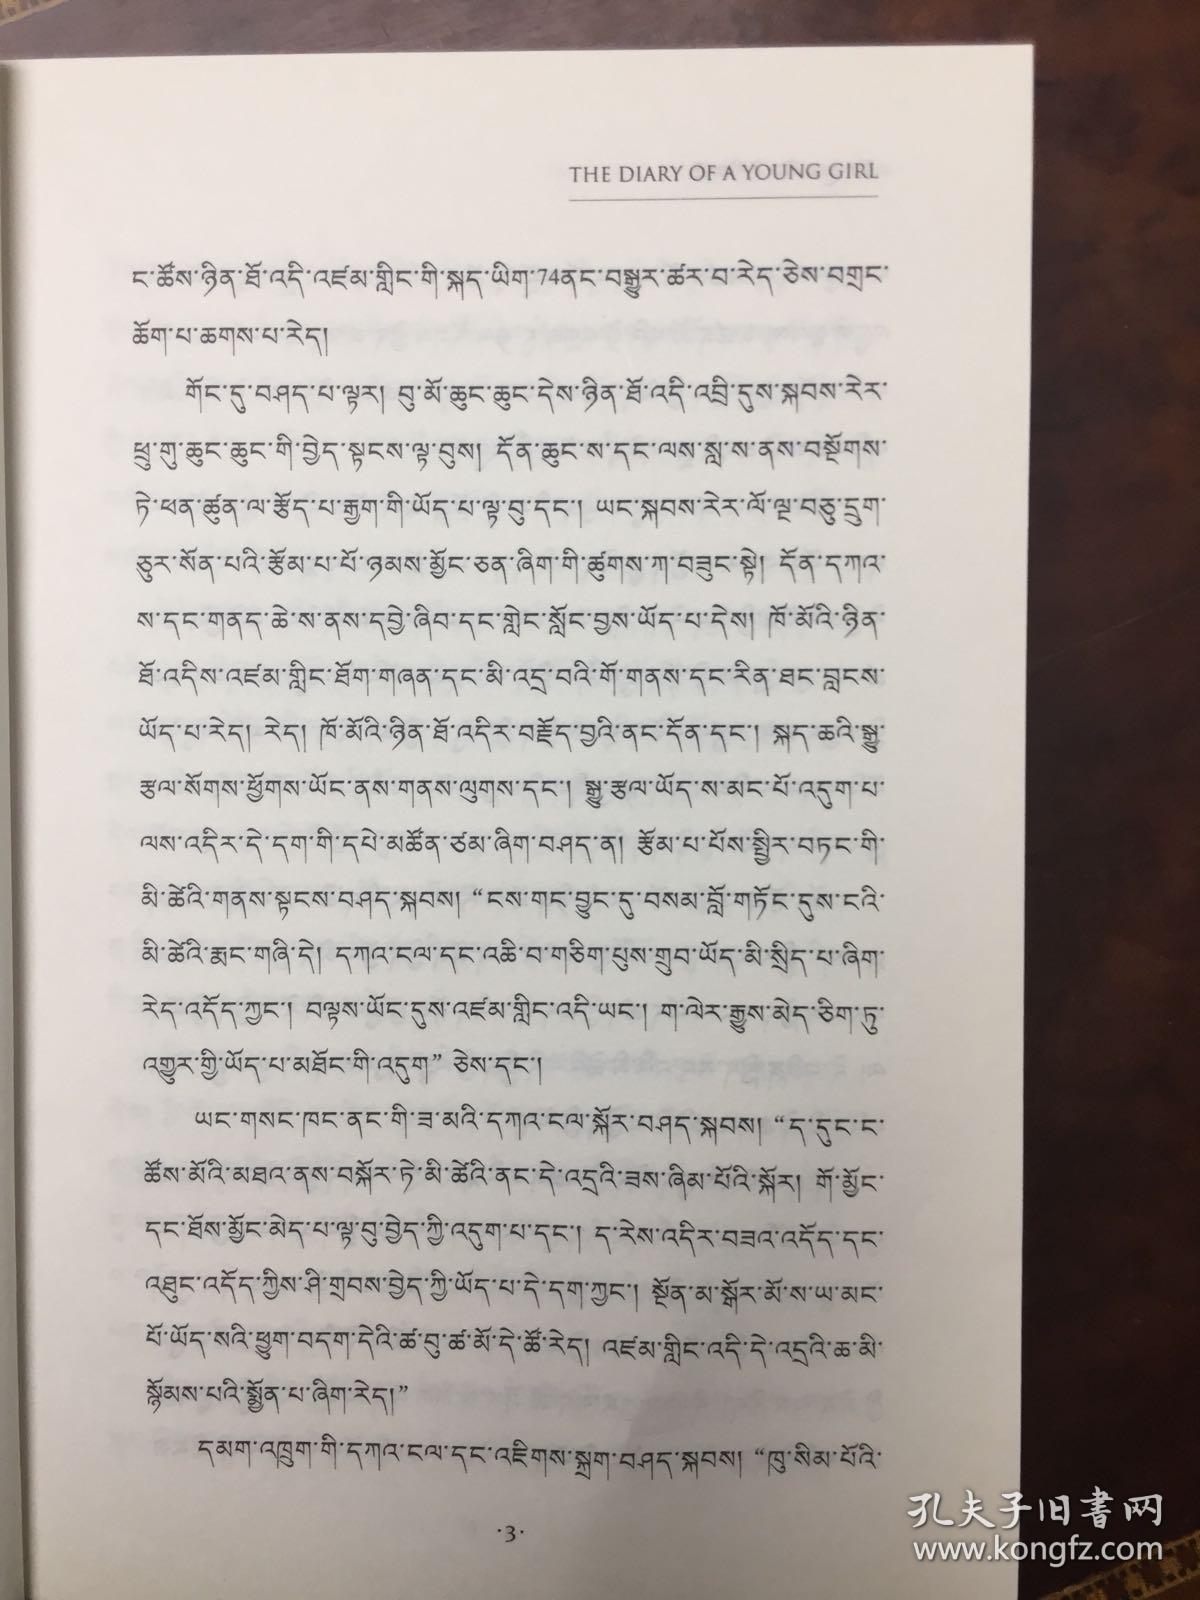 THE DIARY OF A YOUNG GIRL
ང་ཚོས་ཉིན་ཐོ་འདི་འཛམ་གླིང་གི་སྐད་ཡིག་74ནང་བསྒྱུར་ཚར་བ་རེད་ཅེས་བགྲང་
ཆོག་པ་ཆགས་པ་རེད།
གོང་དུ་བཤད་པ་ལྟར། བུ་མོ་ཆུང་ཆུང་དེས་ཉིན་ཐོ་འདི་འབྲི་དུས་སྐབས་རེར་
ཕྲུ་གུ་ཆུང་ཆུང་གི་བྱེད་སྟངས་ལྟ་བུས། དོན་ཆུང་ས་དང་ལས་སླ་ས་ནས་བསྔོགས་
ཏེ་ཕན་ཚུན་ལ་རྩོད་པ་རྒྱག་གི་ཡོད་པ་ལྟ་བུ་དང་། ཡང་སྐབས་རེར་ལོ་ལྔ་བཅུ་དྲུག་
ཅུར་སོན་པའི་རྩོམ་པ་པོ་ཉམས་མྱོང་ཅན་ཞིག་གི་ཚུགས་ཀ་བཟུང་སྟེ། དོན་དཀའ་
ས་དང་གནད་ཆེ་ས་ནས་དབྱེ་ཞིབ་དང་གླེང་སློང་བྱས་ཡོད་པ་དེས། ཁོ་མོའི་ཉིན་
ཐོ་འདིས་འཛམ་གླིང་ཐོག་གཞན་དང་མི་འདྲ་བའི་གོ་གནས་དང་རིན་ཐང་བླངས་
ཡོད་པ་རེད། རེད། ཁོ་མོའི་ཉིན་ཐོ་འདིར་བརྗོད་བྱའི་ནང་དོན་དང་། སྐད་ཆའི་སྒྱུ་
རྩལ་སོགས་ཕྱོགས་ཡོང་ནས་གནས་ལུགས་དང་། སྒྱུ་རྩལ་ཡོད་ས་མང་པོ་འདུག་པ་
ལས་འདིར་དེ་དག་གི་དཔེ་མཚོན་ཙམ་ཞིག་བཤད་ན། རྩོམ་པ་པོས་སྤྱིར་བཏང་གི་
མི་ཚེའི་གནས་སྟངས་བཤད་སྐབས། “ངས་གང་བྱུང་དུ་བསམ་བློ་གཏོང་དུས་ངའི་
མི་ཚེའི་རྨང་གཞི་དེ། དཀའ་ངལ་དང་འཆི་བ་གཅིག་པུས་གྲུབ་ཡོད་མི་སྲིད་པ་ཞིག་
རེད་འདོད་ཀྱང་། བལྟས་ཡོང་དུས་འཛམ་གླིང་འདི་ཡང་། ག་ལེར་རྒྱུས་མེད་ཅིག་ཏུ་
འགྱུར་གྱི་ཡོད་པ་མཐོང་གི་འདུག” ཅེས་དང་།
ཡང་གསང་ཁང་ནང་གི་ཟ་མའི་དཀའ་ངལ་སྐོར་བཤད་སྐབས། “ད་དུང་ང་
ཚོས་མོའི་མཐའ་ནས་བསྐོར་ཏེ་མི་ཚེའི་ནང་དེ་འདྲའི་ཟས་ཞིམ་པོའི་སྐོར། གོ་མྱོང་
དང་ཐོས་མྱོང་མེད་པ་ལྟ་བུ་བྱེད་ཀྱི་འདུག་པ་དང་། ད་རེས་འདིར་བཟའ་འདོད་དང་
འཐུང་འདོད་ཀྱིས་ཤི་གྲབས་བྱེད་ཀྱི་ཡོད་པ་དེ་དག་ཀྱང་། སྔོན་མ་སྒོར་མོ་ས་ཡ་མང་
པོ་ཡོད་སའི་ཕྱུག་བདག་དེའི་ཚ་བུ་ཚ་མོ་དེ་ཚོ་རེད། འཛམ་གླིང་འདི་དེ་འདྲའི་ཆ་མི་
སྙོམས་པའི་སྨྱོན་པ་ཞིག་རེད།”
དམག་འཁྲུག་གི་དཀའ་ངལ་དང་འཇིགས་སྐྲག་བཤད་སྐབས། “ཁུ་སིམ་པོའི་
·3·
孔夫子旧书网
www.kongfz.com